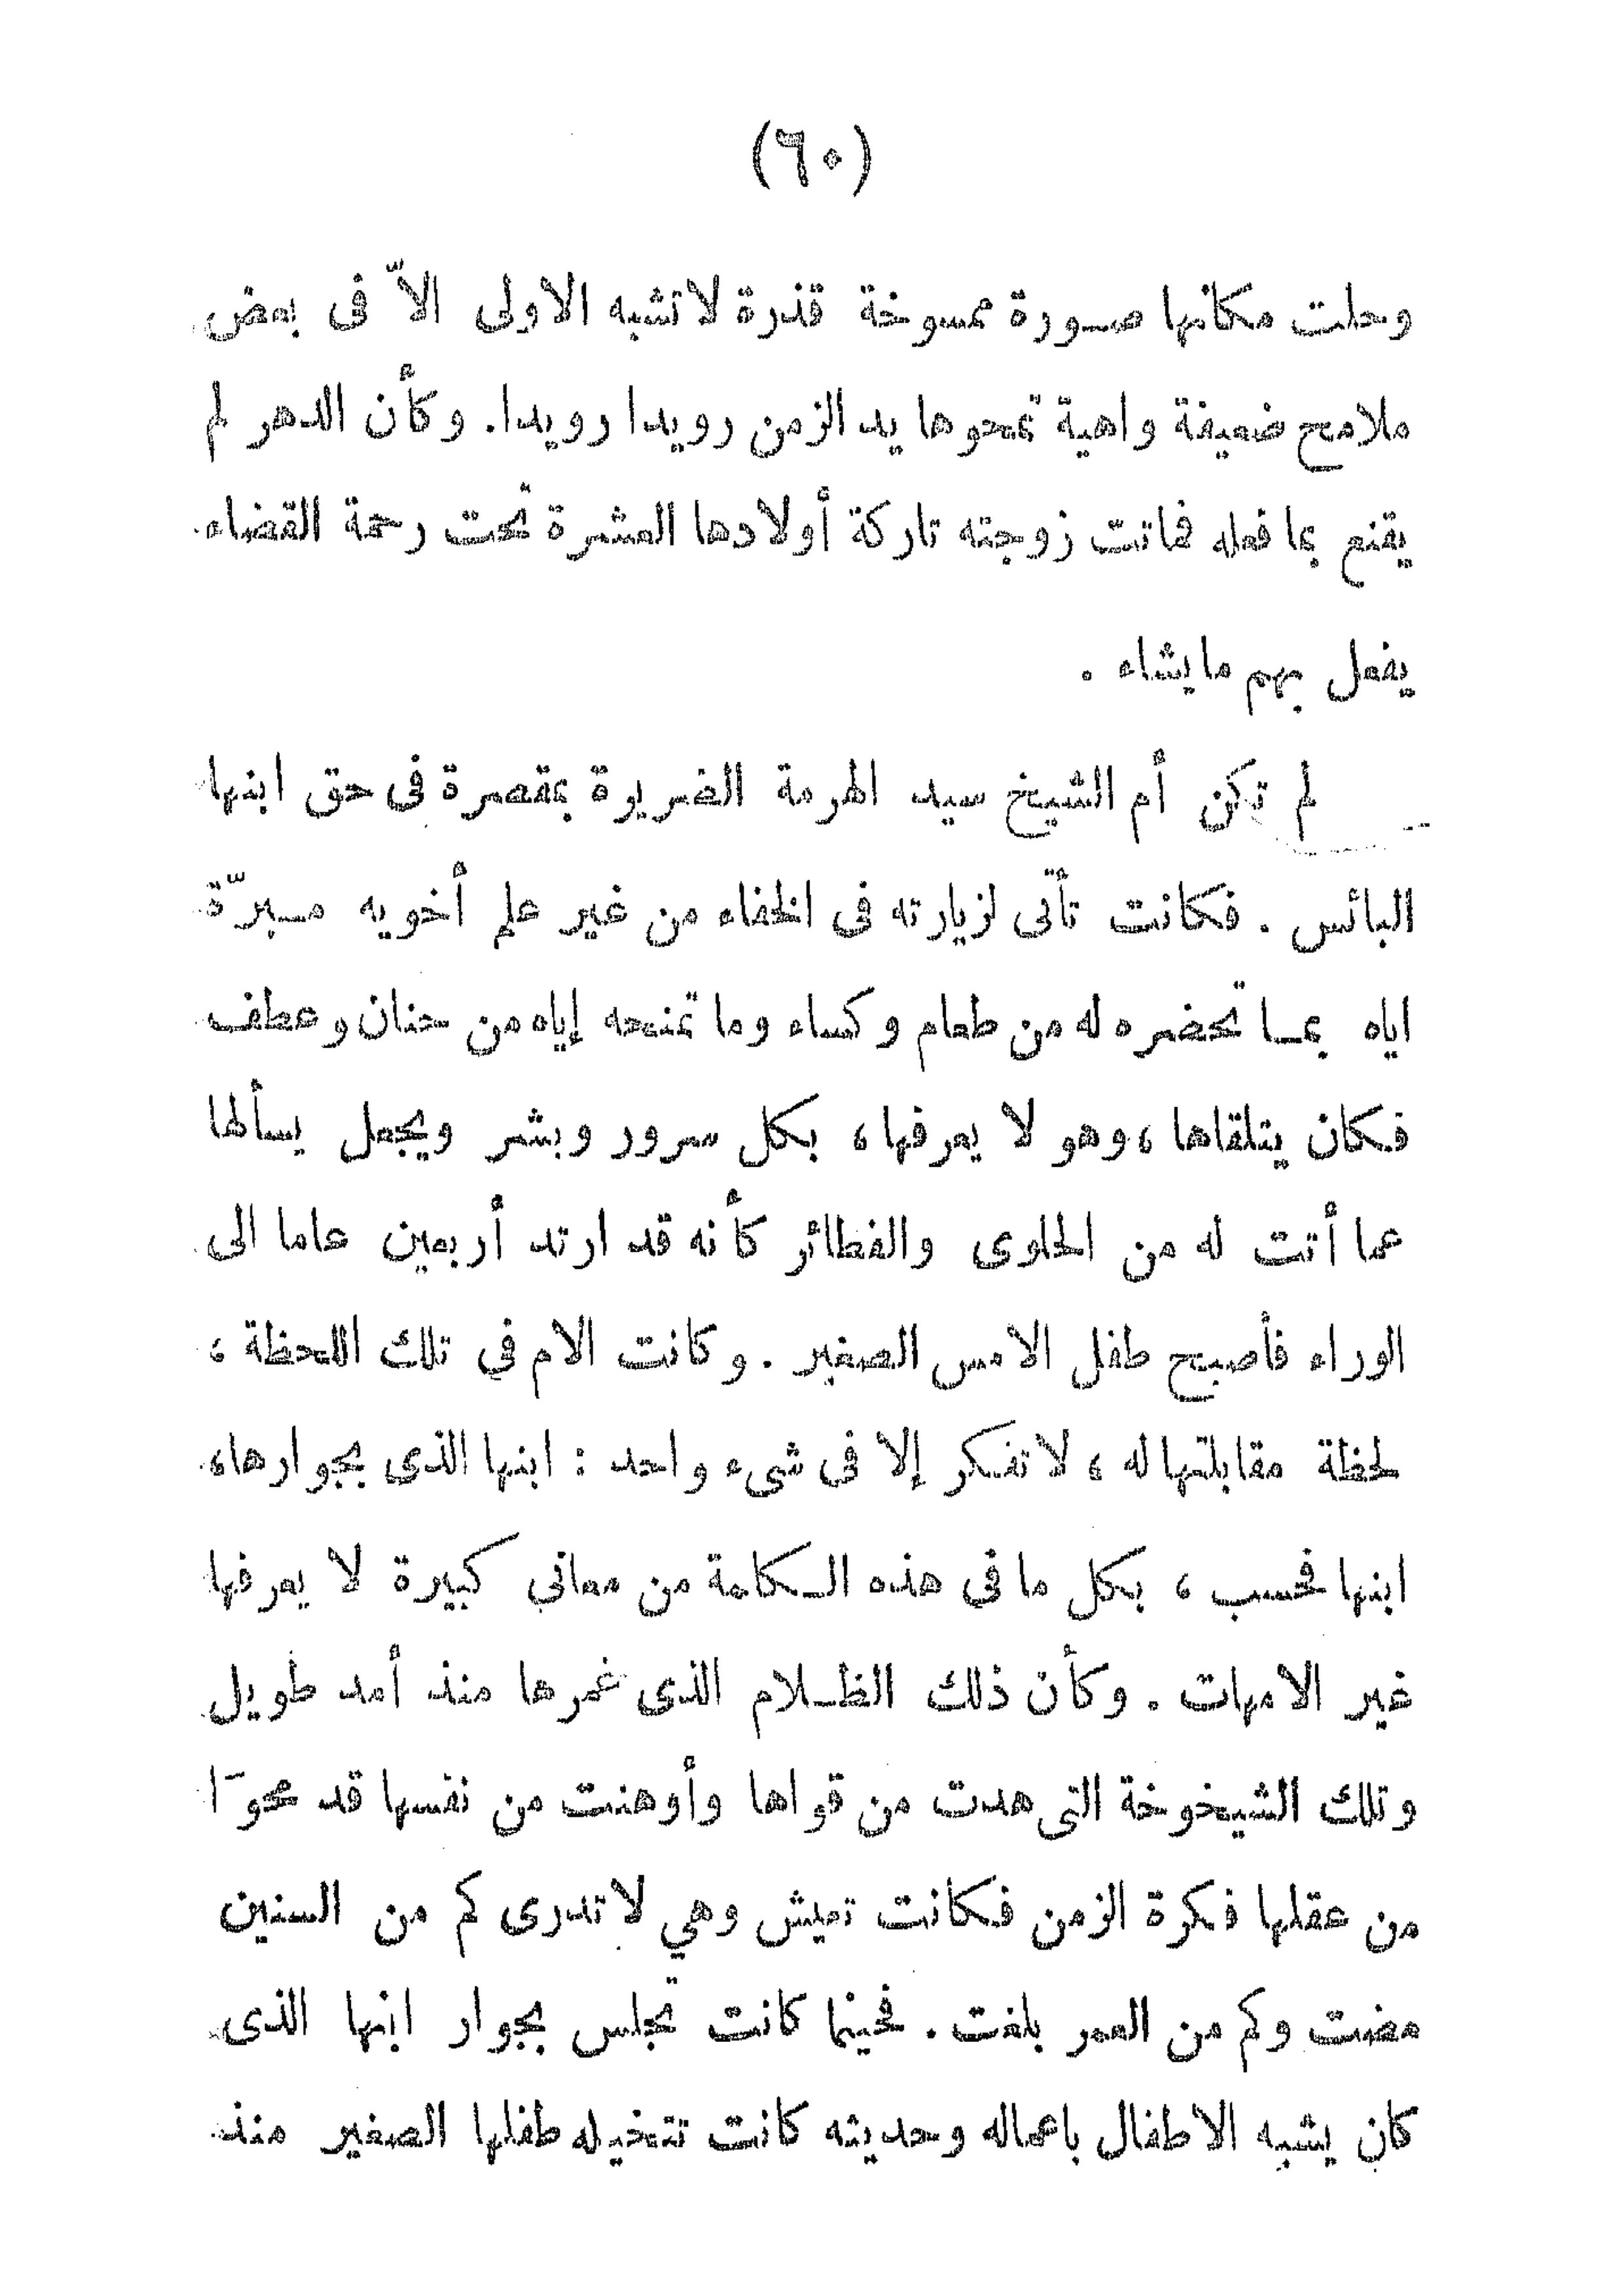 (٦٠)
وحلت مكانها صورة ممسوخة قذرة لا تشبه الاولى الاّ فى بعض
ملامح ضعيفة واهية تمحوها يد الزمن رويدا رويدا. وكأن الدهر لم
يقنع بما فعله فماتت زوجته تاركة أولادها العشرة تحت رحمة القضاء
يفعل بهم ما يشاء .
لم تكن أم الشيخ سيد الهرمة الضريرة بمقصرة فى حق ابنها
البائس . فكانت تأتى لزيارته فى الخفاء من غير علم أخويه مسبرّة
اياه بما تحضره له من طعام وكساء وما تمنحه إياه من حنان وعطف
فكان يتلقاها ، وهو لا يعرفها ، بكل سرور وبشر ويجعل يسألها
عما أتت له من الحلوى والفطائر كأنه قد ارتد أربعين عاما الى
الوراء فأصبح طفل الامس الصغير . وكانت الام في تلك اللحظة ،
لحظة مقابلتها له ، لا تفكر إلا فى شىء واحد : ابنها الذى بجوارها ،
ابنها فحسب ، بكل ما في هذه الكلمة من معانى كبيرة لا يعرفها
غير الامهات . وكأن ذلك الظلام الذى غمرها منذ أمد طويل
وتلك الشيخوخة التى هدت من قواها وأوهنت من نفسها قد محوَا
من عقلها فكرة الزمن فكانت تعيش وهي لا تدرى كم من السنين
مضت وكم من العمر بلغت . فحينما كانت تجلس بجوار ابنها الذى
كان يشبه الاطفال باعماله وحديثه كانت تتخيله طفلها الصغير منذ